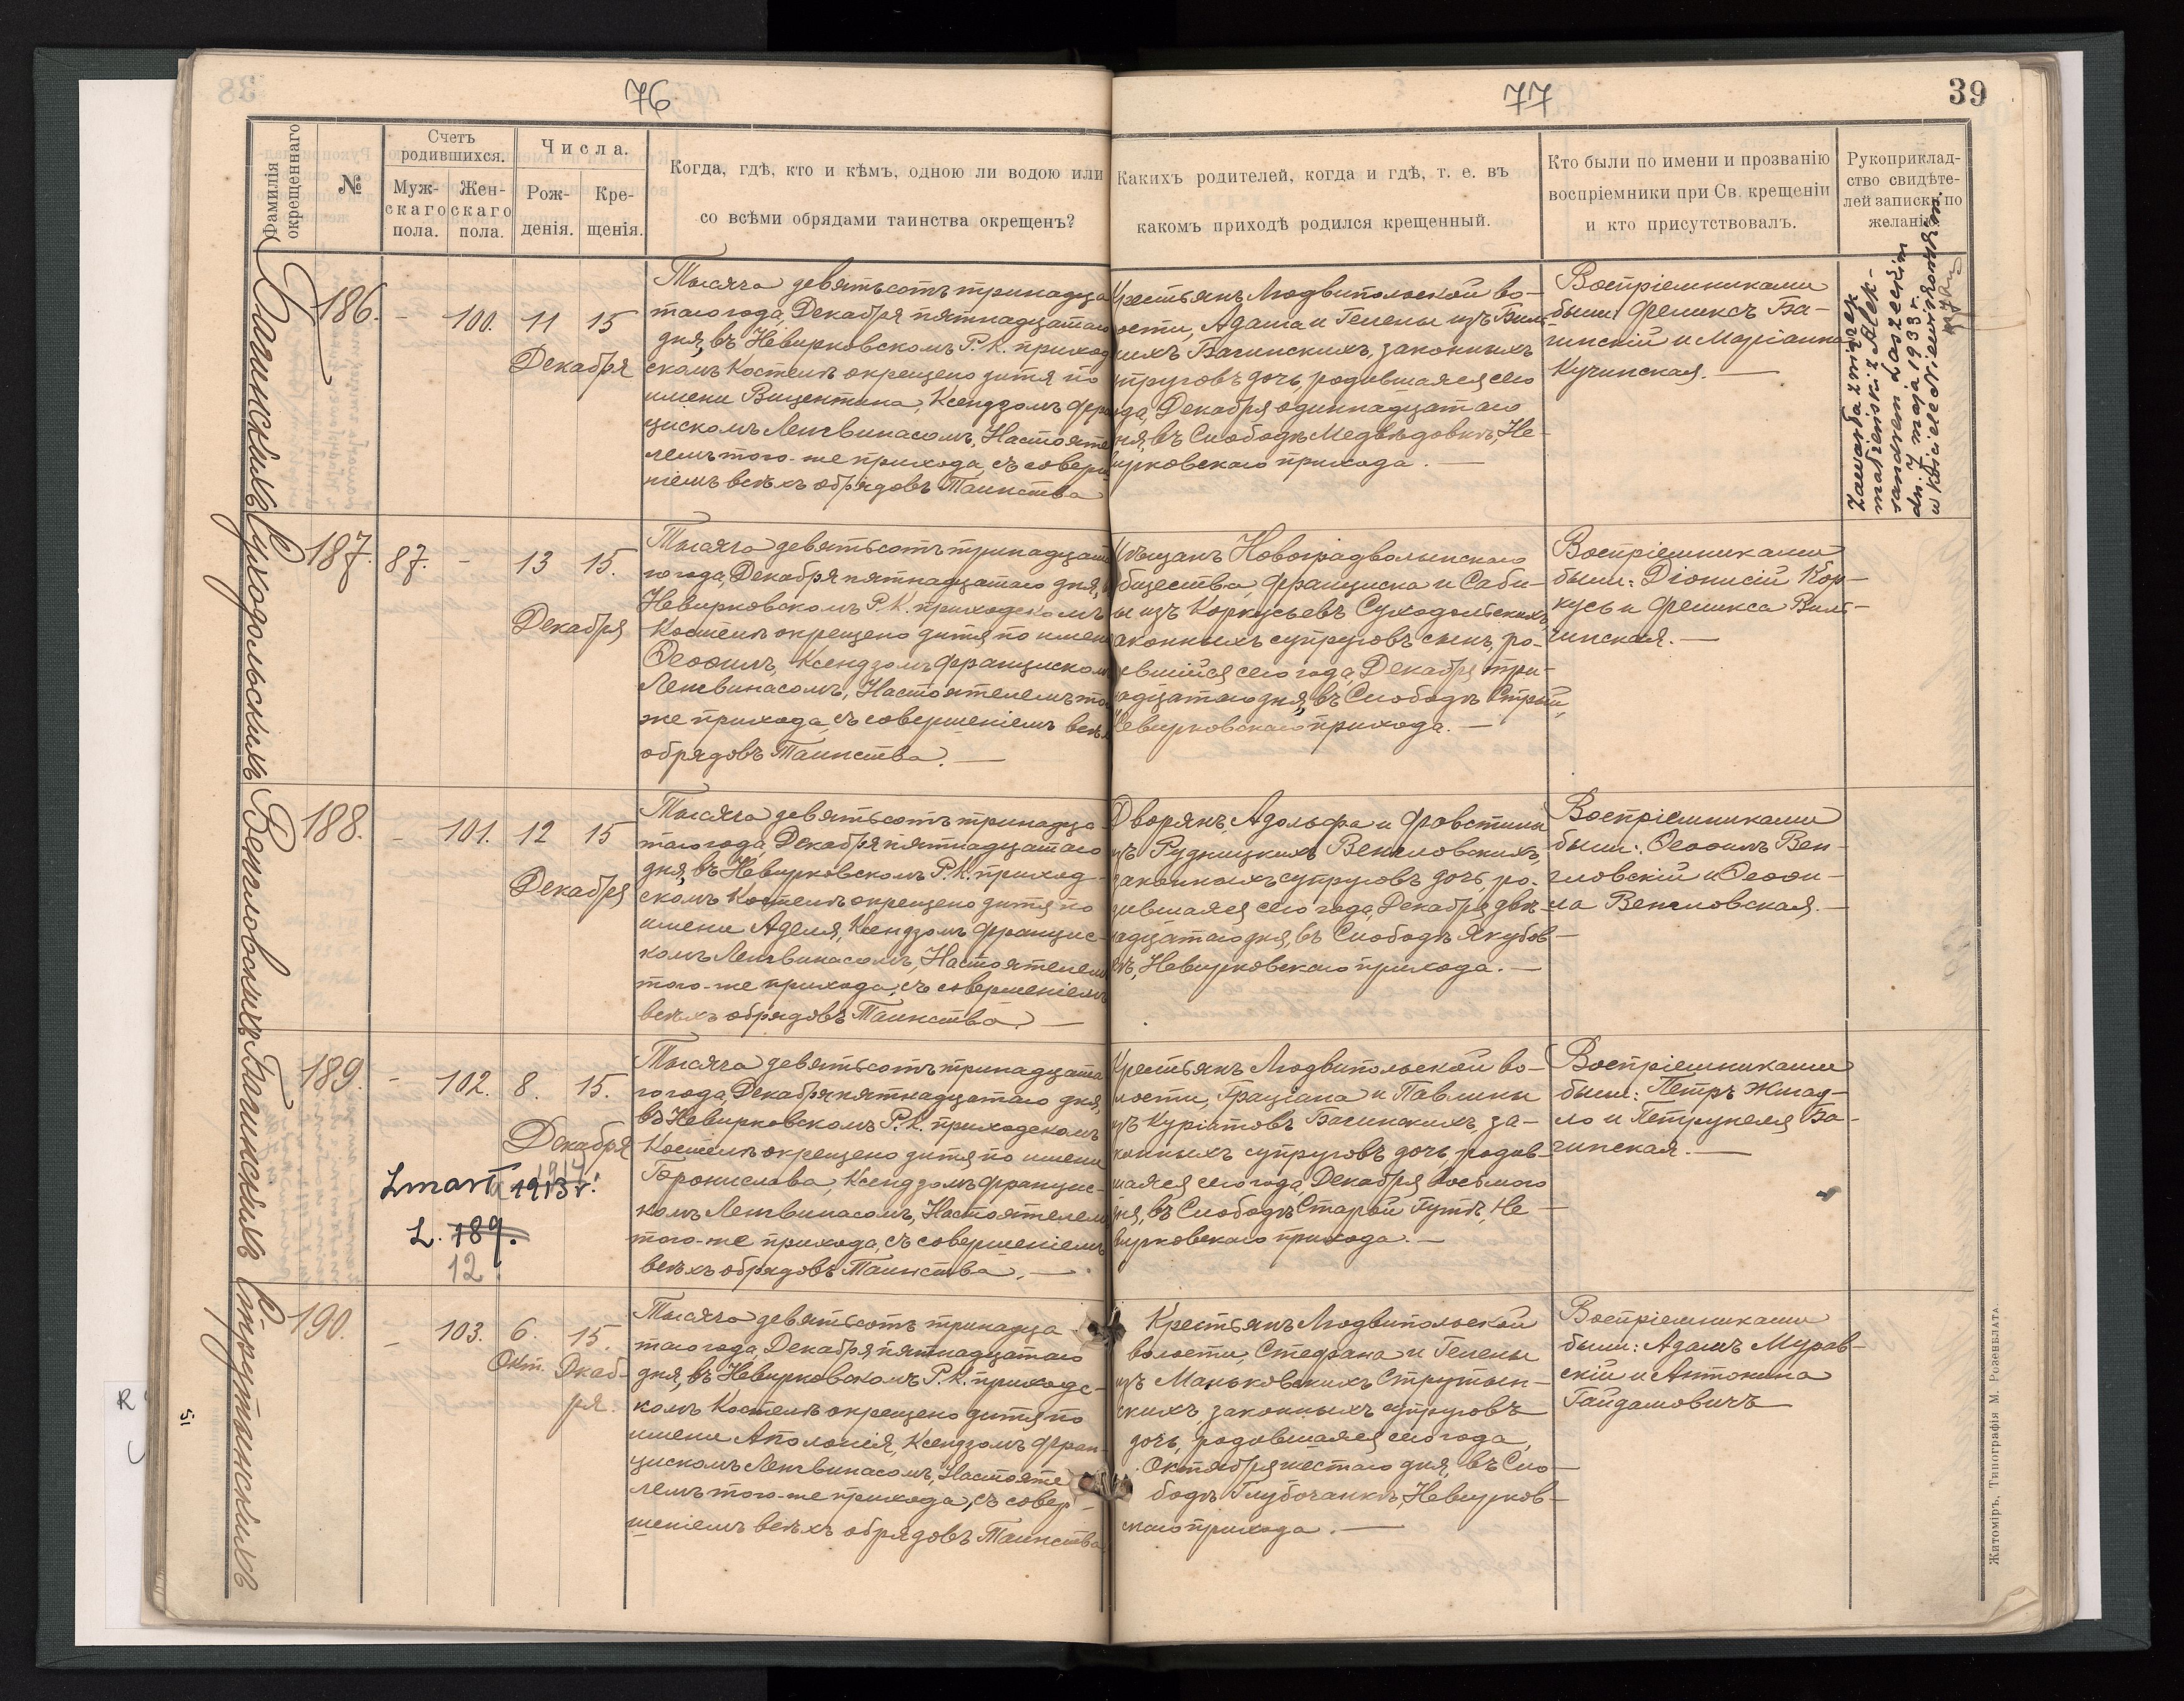 76
77
39
Фамилія
окрещеннаго
№
Счетъ
родившихся.
Муж-
скаго
пола.
Жен-
скаго
пола.
Числа.
Рож-
денія.
Кре-
щенія.
Когда, гдѣ, кто и кѣмъ, одною ли водою или
со всѣми обрядами таинства окрещенъ?
Какихъ родителей, когда и гдѣ, т. е. въ
какомъ приходѣ родился крещенный.
Кто были по имени и прозванію
воспріемники при Св. крещеніи
и кто присутствовалъ.
Рукоприклад-
ство свидѣте-
лей записки по
желанію.
Багинскихъ
186. - 100. 11 15
Декабря
Тысяча девятьсотъ тринадца
таго года, Декабря пятнадцатаго
дня, въ Невирковскомъ Р. К. приход
скомъ Костелѣ окрещено дитя по
имени Вицентина, Ксендзомъ Фран
цискомъ Ленгвинасомъ, Настояте
лемъ того-же прихода, съ соверше
ніемъ всѣхъ обрядовъ Таинства
Крестьянъ Людвипольской во-
лости, Адама и Гелены изъ
шихъ Багинскихъ, законныхъ
супруговъ дочь, родившаяся сего
года, Декабря одиннадцатаго
дня, въ Слободѣ Медвѣдовкѣ, Не-
вирковскаго прихода. —
Воспріемниками
были: Феликсъ Ба-
гинскій и Маріанна
Кучинская. —
Zawarła związek
małżeński z Alek-
sandrem Łaszeckim
dn. 7 maja 1933 r.
w kościele Niewirkowskim.
Суходольскихъ
187. 87. - 13 15.
Декабря
Тысяча девятьсотъ тринадцата
го года, Декабря пятнадцатаго дня, въ
Невирковскомъ Р. К. приходскомъ
Костелѣ окрещено дитя по имени
Ѳеофилъ, Ксендзомъ Францискомъ
Ленгвинасомъ, Настоятелемъ того
же прихода, съ совершеніемъ всѣхъ
обрядовъ Таинства. —
Мѣщанъ Новоградволынскаго
общества, Франциска и Саби-
ны изъ Коркусьевъ Суходольскихъ,
законныхъ супруговъ сынъ, ро-
дившійся сего года, Декабря три-
надцатаго дня, въ Слободѣ Стрыи,
Невирковскаго прихода. —
Воспріемниками
были: Діонисій Кор-
кусь и Феликса Виль-
чинская. —
Венгловскихъ
188. - 101. 12 15
Декабря
Тысяча девятьсотъ тринадца
таго года, Декабря пятнадцатаго
дня, въ Невирковскомъ Р. К. приход-
скомъ Костелѣ окрещено дитя по
имени Аделя, Ксендзомъ Францис-
комъ Ленгвинасомъ, Настоятелемъ
того-же прихода, съ совершеніемъ
всѣхъ обрядовъ Таинства. —
Дворянъ, Адольфа и Фавстины
изъ Рудницкихъ Венгловскихъ,
законныхъ супруговъ дочь, ро-
дившаяся сего года, Декабря двѣ-
надцатаго дня, въ Слободѣ Якубов-
кѣ, Невирковскаго прихода. —
Воспріемниками
были: Ѳеофилъ Вен-
гловскій и Ѳеофи-
ла Венгловская. —
Багинскихъ
189. - 102. 8. 15.
Декабря
Zmarła 1913 r.
1914
L. 189.
12.
Тысяча девятьсотъ тринадцата
го года, Декабря пятнадцатаго дня,
въ Невирковскомъ Р. К. приходскомъ
Костелѣ окрещено дитя по имени
Бронислава, Ксендзомъ Францис-
комъ Ленгвинасомъ, Настоятелемъ
того-же прихода, съ совершеніемъ
всѣхъ обрядовъ Таинства. —
Крестьянъ Людвипольской во-
лости, Граціана и Павлины
изъ Куріятовъ Багинскихъ, за-
конныхъ супруговъ дочь, родив-
шаяся сего года, Декабря восьмого
дня, въ Слободѣ Старой Гутѣ, Не-
вирковскаго прихода. —
Воспріемниками
были: Петръ Жигад-
ло и Петрунеля Ба-
гинская. —
Струтинскихъ
190. - 103. 6. 15.
Окт. Декаб-
ря.
Тысяча девятьсотъ тринадца
таго года, Декабря пятнадцатаго
дня, въ Невирковскомъ Р. К. приходс-
комъ Костелѣ окрещено дитя по
имени Аполонія, Ксендзомъ Фран-
цискомъ Ленгвинасомъ, Настояте
лемъ того-же прихода, съ совер-
шеніемъ всѣхъ обрядовъ Таинства
Крестьянъ Людвипольской
волости, Стефана и Гелены
изъ Маньковскихъ Струтын-
скихъ, законныхъ супруговъ
дочь, родившаяся сего года,
Октября шестаго дня, въ Сло-
бодѣ Глубочанкѣ, Невирков-
скаго прихода. —
Воспріемниками
были: Адамъ Мурав-
скій и Антонина
Гайдамовичъ
Житоміръ, Типографія М. Розенблата.
51